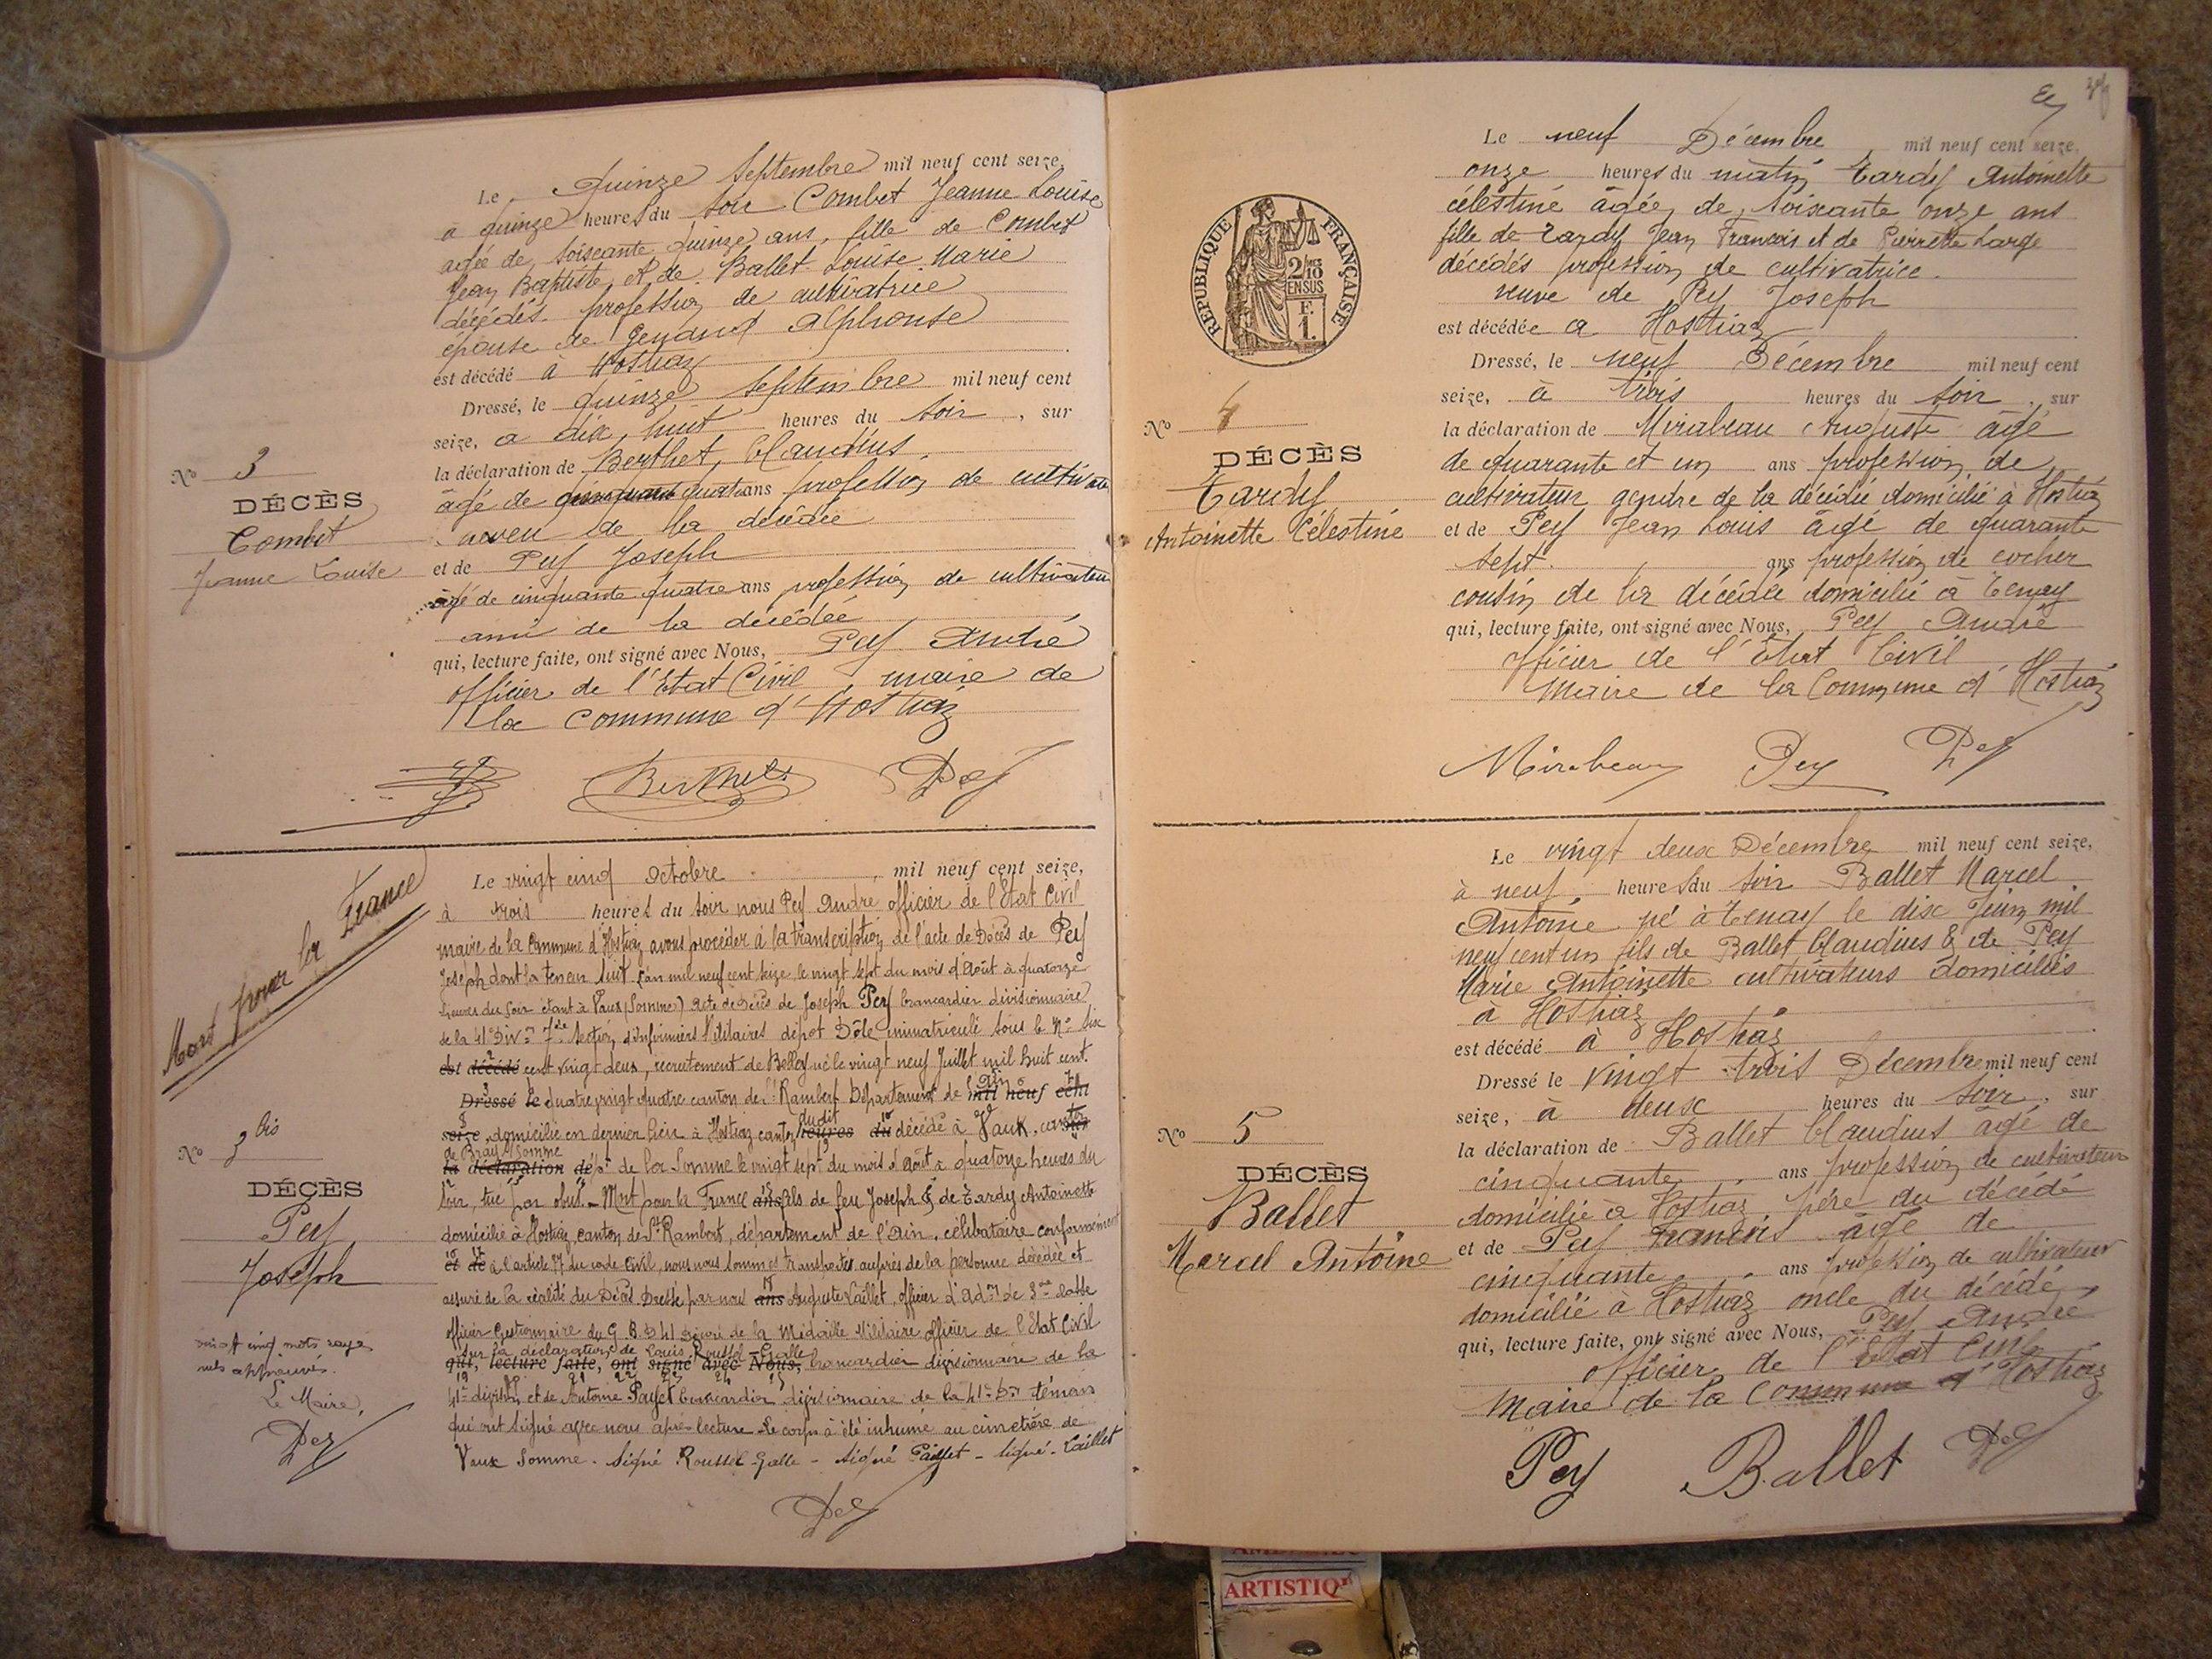 Le Quinze Septembre mil neuf cent seize,
à quinze heures du soir Combet Jeanne Louise
agée de soixante quinze ans, fille de Combet
Jean Baptiste et de Ballet Louise Marie
décédés profession de cultivatrice
épouse de Alphonse
est décédé à Hostiaz
Dressé, le quinze Septembre mil neuf cent
seize, a dix huit heures du soir, sur
la déclaration de Berthet, Claudius
âgé de ans profession de
neveu de la décédée
et de Pey Joseph
âgé de cinquante quatre ans profession de cultivateur
ami de la décédée
qui, lecture faite, ont signé avec Nous, Pey André
officier de l'Etat Civil maire de
la Commune d'Hostiaz
Berthet Pey
No 3
DÉCÈS
Combet
Jeanne Louise
Le vingt cinq Octobre, mil neuf cent seize,
à trois heures du soir nous Pey André officier de l'Etat Civil
maire de la Commune d'Hostiaz avons procéder à la transcription de l'acte de Décès de Pey
Joseph dont la teneur suit. L'an mil neuf cent seize le vingt sept du mois d'Août à quatorze
heures du soir étant à Vaux (Somme) Acte de Décès de Joseph Pey brancardier divisionnaire
de la 41e Divon 7me Section d'infirmiers Militaires dépot Dôle immatriculé sous le No six
est décédé cent vingt deux, recrutement de Belley né le vingt neuf Juillet mil huit cent
Dressé le quatre vingt quatre canton de St Rambert Département de l'Ain mil neuf cent
seize, domicilié en dernier lieu à Hostiaz canton dudit heures du décédé à Vaux, canton
de Bray Somme
la déclaration de de la Somme le vingt sept du mois d'Août à quatorze heures du
soir, tué par obus. - Mort pour la France ans fils de feu Joseph & de Tardy Antoinette
domicilié à Hostiaz, canton de St Rambert, département de l'Ain, célibataire conformément
et de à l'article 77 du code Civil, nous nous sommes transportés auprès de la personne décédée et
assuré de la réalité du Décès. Dressé par nous ans Auguste Caillet, officier d'admon de 3me classe
officier Gestionnaire du G. B. D 41 décoré de la Médaille Militaire officier de l'Etat Civil
sur la déclaration de Louis Roussel-Galle
qui, lecture faite, ont signé avec Nous, brancardier divisionnaire de la
41e division et de Antoine Payet brancardier divisionnaire de la 41e Don témoins
qui ont signé avec nous après lecture. Le corps à été inhumé au cimetière de
Vaux Somme. Signé Roussel-Galle - signé Payet - signé - Caillet
Pey
Mort pour la France
No 3 bis
DÉCÈS
Pey
Joseph
vingt cinq mots rayés
nuls approuvés.
Le Maire,
Pey
Le neuf Décembre, mil neuf cent seize,
onze heures du matin Tardy Antoinette
célestine âgée de soixante onze ans
fille de Tardy Jean François et de Pierrette Large
décédés profession de cultivatrice.
veuve de Pey Joseph
est décédée a Hostiaz
Dressé, le neuf Décembre mil neuf cent
seize, à trois heures du soir, sur
la déclaration de Mirabeau Auguste âgé
de quarante et un ans profession de
cultivateur gendre de la décédée domicilié à Hostiaz
et de Pey Jean Louis âgé de quarante
sept ans profession de cocher
cousin de la décédée domicilié à Tenay
qui, lecture faite, ont signé avec Nous, Pey André
officier de l'Etat Civil
Maire de la Commune d'Hostiaz
Mirabeau Pey Pey
RÉPUBLIQUE FRANÇAISE
2/10 EN SUS
F. 1.
No 4
DÉCÈS
Tardy
Antoinette Célestine
Le vingt deux Décembre mil neuf cent seize,
à neuf heures du soir Ballet Marcel
Antoine né à Tenay le dix Juin mil
neuf cent un fils de Ballet Claudius & de Pey
Marie Antoinette cultivateurs domiciliés
à Hostiaz
est décédé à Hostiaz
Dressé le vingt trois Décembre mil neuf cent
seize, à deux heures du soir, sur
la déclaration de Ballet Claudius âgé de
cinquante ans profession de cultivateur
domicilié à Hostiaz père du décédé
et de Pey François âgé de
cinquante ans profession de cultivateur
domicilié à Hostiaz oncle du décédé
qui, lecture faite, ont signé avec Nous, Pey André
officier de l'Etat Civil
Maire de la Commune d'Hostiaz
Pey Ballet Pey
No 5
DÉCÈS
Ballet
Marcel Antoine
ARTISTIQ